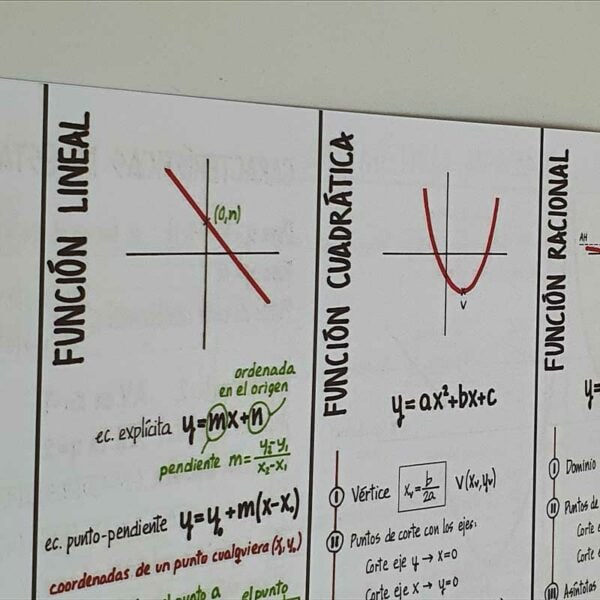 FUNCIÓN LINEAL
(0,n)
ordenada
en el origen
ec. explícita y=mx+n
pendiente m=y₂-y₁/x₂-x₁
ec. punto-pendiente y=y₀+m(x-x₀)
coordenadas de un punto cualquiera (x₀,y₀)
el punto
FUNCIÓN CUADRÁTICA
V
y=ax²+bx+c
I Vértice xᵥ=b/2a V(xᵥ,yᵥ)
II Puntos de corte con los ejes:
Corte eje y → x=0
Corte eje x → y=0
FUNCIÓN RACIONAL
AH
y=
I Dominio
II Puntos de
Corte e
Corte
III Asíntotas